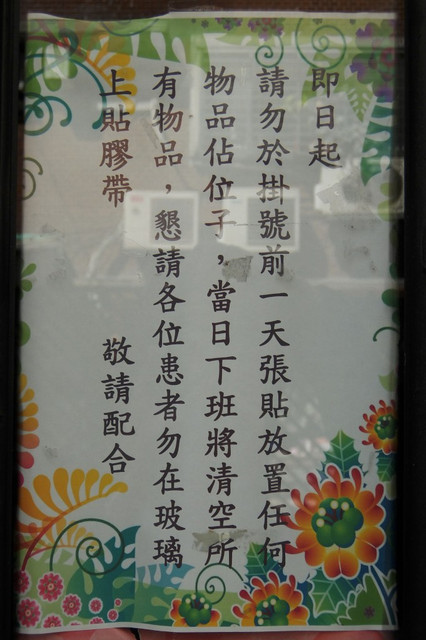 即日起
請勿於掛號前一天張貼放置任何
物品佔位子，當日下班將清空所
有物品，懇請各位患者勿在玻璃
上貼膠帶 敬請配合